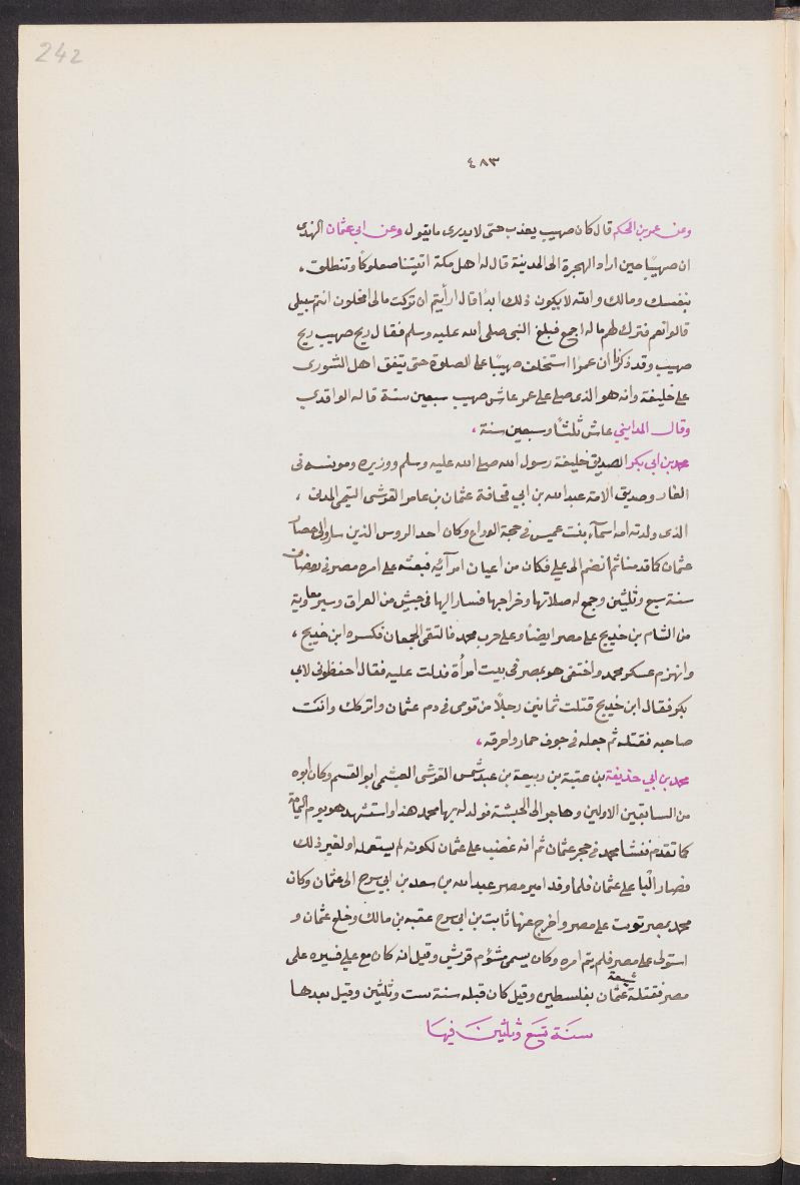 242
٤٨٣
وعن عمر بن الحكم قال كان صهيب يعذب حتى لا يدرى ما يقول وعن ابى عثمان النهدى
ان صهيبًا حين اراد الهجرة الى المدينة قال له اهل مكة اتيتنا صعلوكًا وتنطلق ،
بنفسك ومالك والله لا يكون ذلك ابدًا قال ارأيتم ان تركت مالى امخلون انتم سبيلى
قالوا نعم فترك لهم ماله اجمع فبلغ النبى صلى الله عليه وسلم فقال ربح صهيب ربح
صهيب وقد ذكرنا ان عمر استخلف صهيبًا على الصلوة حتى يتفق اهل الشورى
على خليفة وانه هو الذى صلى على عمر عاش صهيب سبعين سنة قاله الواقدي
وقال المدايني عاش ثلثًا وسبعين سنة ،
محمد بن ابى بكر الصديق خليفة رسول الله صلى الله عليه وسلم ووزيره ومونسه فى
الغار وصديق الامة عبد الله بن ابي قحافة عثمان بن عامر القرشى التيمى المدنى ،
الذى ولدته امه اسمآء بنت عميس فى حجة الوداع وكان احد الروس الذين ساروا الى حصار
عثمان كما قدمنا ثم انضم الى علي فكان من اعيان امرآئه فبعثه على امره مصر فى رمضان
سنة سبع وثلثين وجمع له صلاتها وخراجها فسار اليها فى جيش من العراق وسير معاوية
من الشام بن خديج على مصر ايضًا وعلى حرب محمد فالتقى الجمعان فكسره ابن خديج ،
وانهزم عسكر محمد واختفى هو بمصر فى بيت امرأة فدلت عليه فقال احفظونى لابي
بكر فقال ابن خديج قتلت ثمانين رجلًا من قومى فى دم عثمان واتركك وانت
صاحبه فقتله ثم جعله فى جوف حمار واحرقه ،
محمد بن ابي حذيفة بن عتبة بن ربيعة بن عبد شمس القرشى العبشمى ابو القسم وكان ابوه
من السابقين الاولين وهاجر الى الحبشة فولد له بها محمد هذا واستشهد هو يوم اليمامة
كما تقدم فنشا محمد فى حجر عثمان ثم انه غضب على عثمان لكونه لم يستعمله او لغير ذلك
فصار البًا على عثمان فلما وفد امير مصر عبد الله بن سعد بن ابي سرح الى عثمان وكان
محمد بمصر توبت على مصر واخرج عنها ثابت بن ابى سرح عقبه بن مالك وخلع عثمان و
استولى على مصر فلم يتم امره وكان يسمى مشؤم قريش وقيل انه كان مع علي فسيره على
مصر فقتلة شيعة عثمان بفلسطين وقيل كان قبله سنة ست وثلثين وقيل بعدها
سنة تسع وثلثين فيها